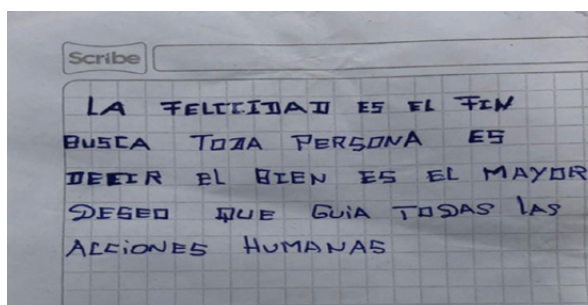 Scribe
LA FELICIDAD ES EL FIN
BUSCA TODA PERSONA ES
DECIR EL BIEN ES EL MAYOR
DESEO QUE GUIA TODAS LAS
ACCIONES HUMANAS